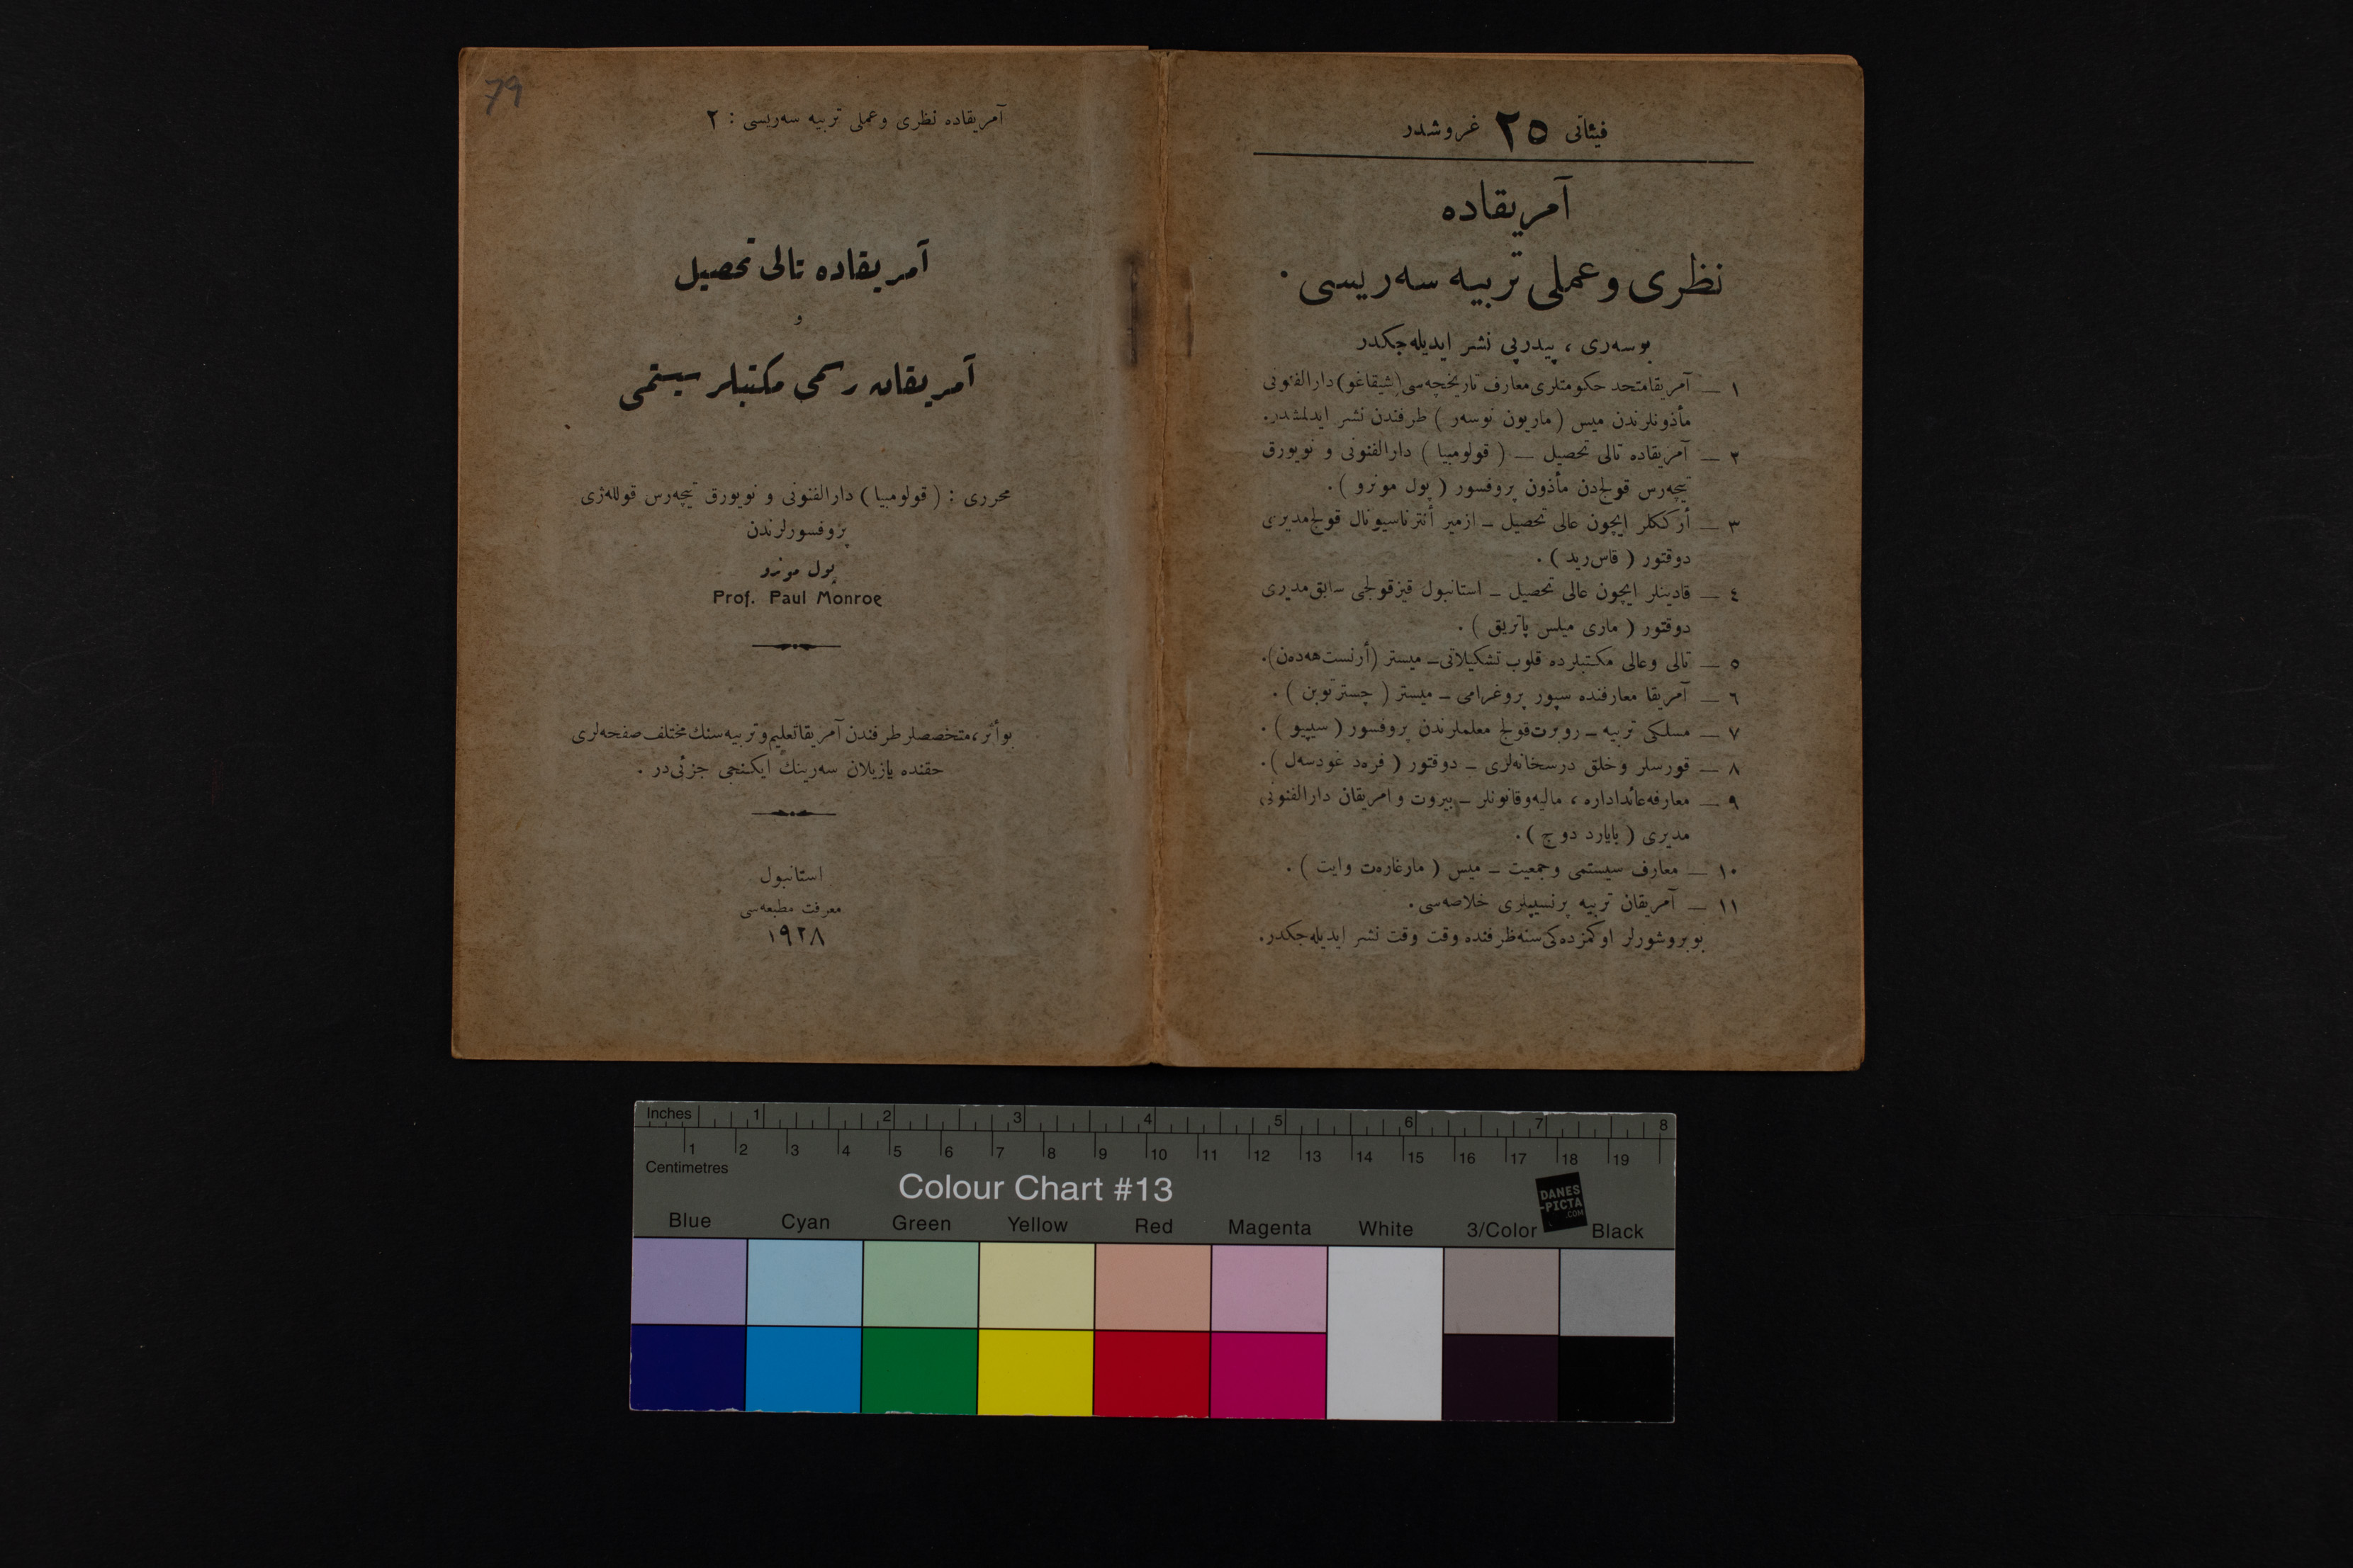 79
آمریقاده نظری وعملی تربیه سه‌ریسی : ٢
آمریقاده تالی تحصیل
و
آمریقان رسمی مکتبلر سیستمی
محرری : ( قولومبیا ) دارالفنونی و نویورق تیچه‌رس قولله‌ژی
پروفسورلرندن
پول مونرو
Prof. Paul Monroe
بوأثر، متخصصلر طرفندن آمریقا تعلیم و تربیه سنك مختلف صفحه‌لری
حقنده یازیلان سه‌رینك ایکنجی جزئی در .
استانبول
معرفت مطبعه‌سی
١٩٢٨
فیئاتی ٢٥ غروشدر
آمریقاده
نظری وعملی تربیه سه‌ریسی .
بوسه‌ری ، پیدرپی نشر ایدیله‌جکدر
١ — آمریقا متحد حکومتلری معارف تاریخچه‌سی (شیقاغو) دارالفنونی
مأذونلرندن میس ( ماریون نوسه‌ر ) طرفندن نشر ایدلمشدر.
٢ — آمریقاده تالی تحصیل — ( قولومبیا ) دارالفنونی و نویورق
تیچه‌رس قولجدن مأذون پروفسور ( پول مونرو ) .
٣ — أركکلر ایچون عالی تحصیل — ازمیر أنترناسیونال قولج مدیری
دوقتور ( قاس رید ) .
٤ — قادینلر ایچون عالی تحصیل — استانبول قیز قولجی سابق مدیری
دوقتور ( ماری میلس پاتریق ) .
٥ — تالی وعالی مکتبلرده قلوب تشکیلاتی — میستر (أرنست هه‌ده‌ن).
٦ — آمریقا معارفنده سپور پروغرامی — میستر ( چستر توبن ) .
٧ — مسلکی تربیه — روبرت قولج معلملرندن پروفسور ( سیپیو ) .
٨ — قورسلر وخلق درسخانه‌لری — دوقتور ( فره‌د غودسه‌ل ) .
٩ — معارفه عائد اداره ، مالیه و قانونلر — بیروت و امریقان دارالفنونی
مدیری ( بایارد دوج ) .
١٠ — معارف سیستمی وجمعیت — میس ( مارغاره‌ت وایت ) .
١١ — آمریقان تربیه پرنسیپلری خلاصه‌سی .
بو بروشورلر اوکمزده‌کی سنه ظرفنده وقت وقت نشر ایدیله‌جکدر.
Inches 1 2 3 4 5 6 7 8
1 2 3 4 5 6 7 8 9 10 11 12 13 14 15 16 17 18 19
Centimetres
Colour Chart #13
DANES
-PICTA
.COM
Blue Cyan Green Yellow Red Magenta White 3/Color Black